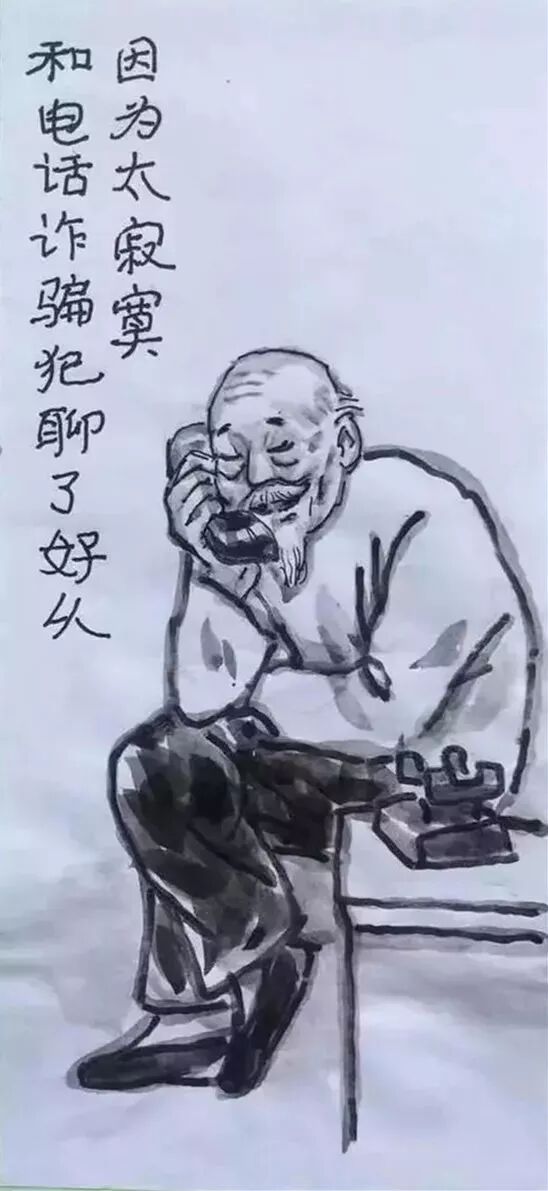 因为太寂寞
和电话诈骗犯聊了好久